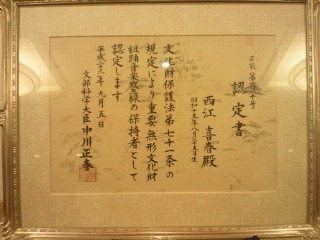 認定書
西江喜春殿
昭和十五年八月二十五日生
文化財保護法第七十一条の
規定により重要無形文化財
組踊音楽歌三線の保持者として
認定します
平成二十三年九月五日
文部科学大臣 中川正春